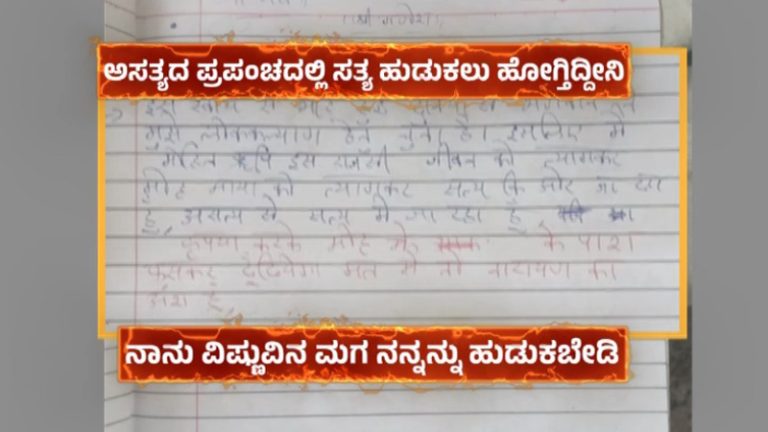 (श्री गणेश)
ಅಸತ್ಯದ ಪ್ರಪಂಚದಲ್ಲಿ ಸತ್ಯ ಹುಡುಕಲು ಹೋಗ್ತಿದ್ದೀನಿ
मुझे लोककल्याण हेतु चुना है। इसलिए मैं
इस राजसी जीवन को त्यागकर
मोह माया को त्यागकर सत्य कि ओर जा रहा
हूं असत्य से सत्य में जा रहा हूं
कृपया करके मोह के पाश
फसकर ढूंढियेगा मत में तो नारायण का
अंश हूं
ನಾನು ವಿಷ್ಣುವಿನ ಮಗ ನನ್ನನ್ನು ಹುಡುಕಬೇಡಿ